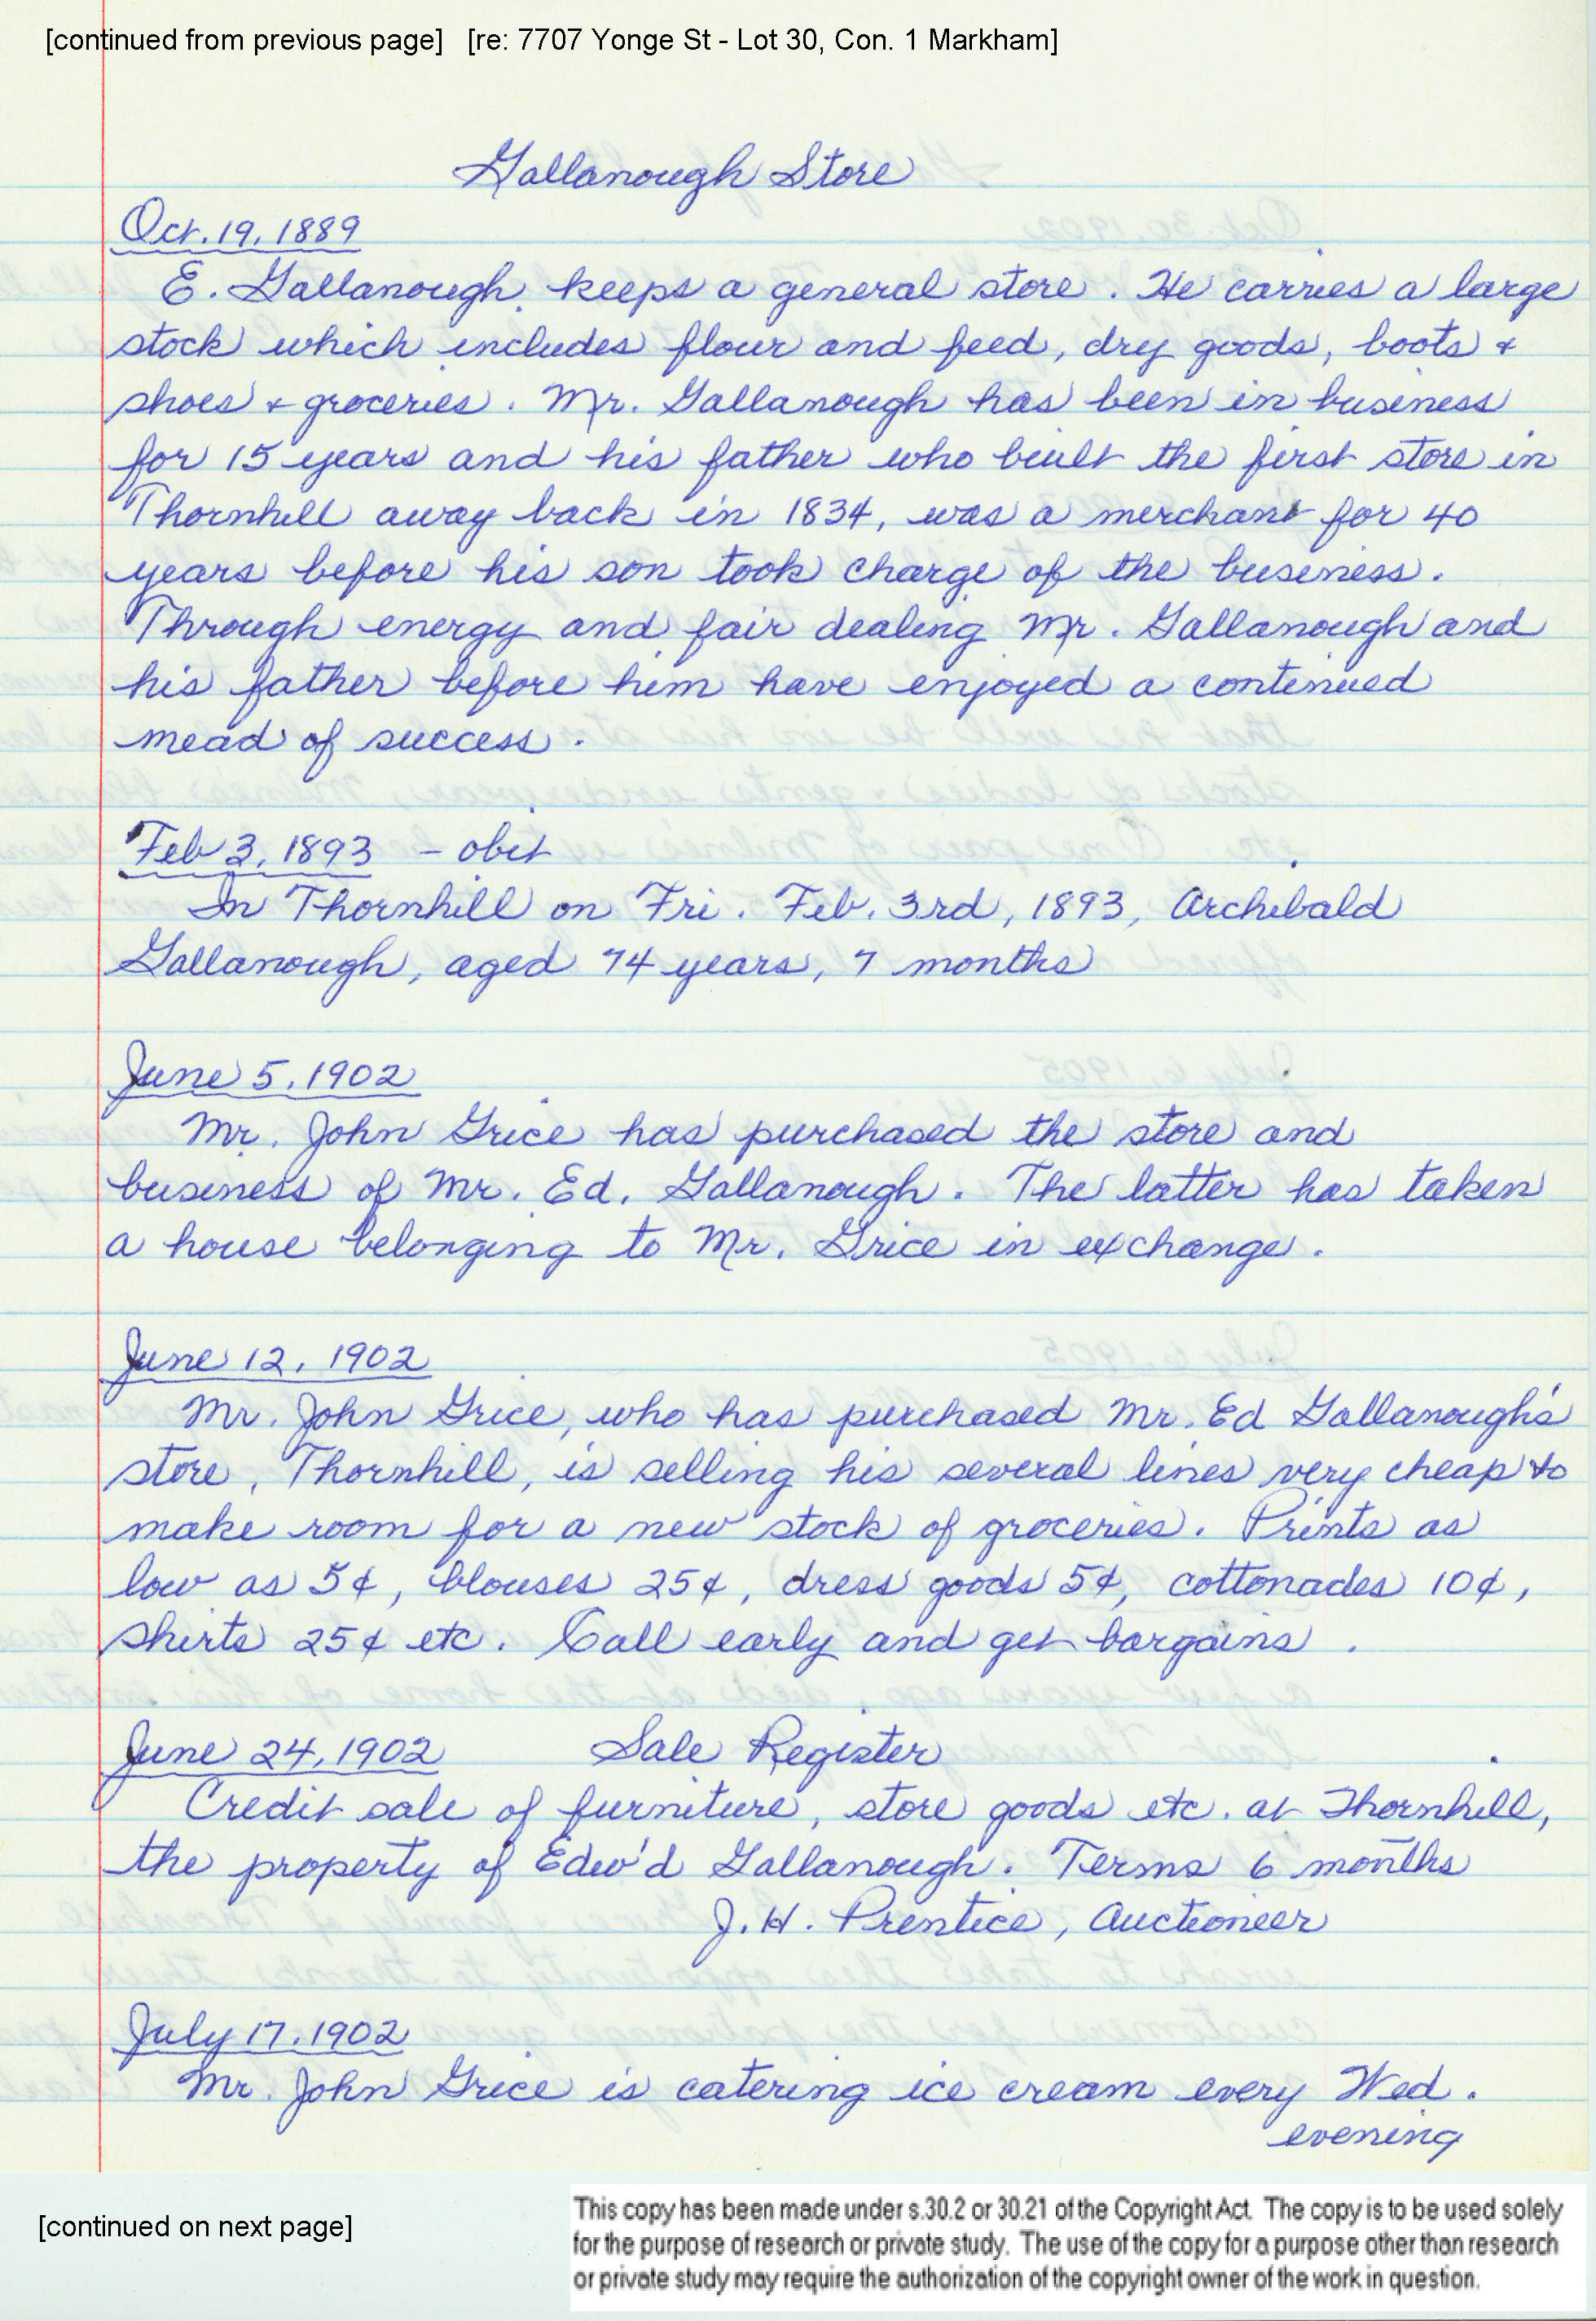 [continued from previous page] [re: 7707 Yonge St - Lot 30, Con. 1 Markham]
Gallanough Store
Oct. 19, 1889
E. Gallanough keeps a general store. He carries a large
stock which includes flour and feed, dry goods, boots &
shoes & groceries. Mr. Gallanough has been in business
for 15 years and his father who built the first store in
Thornhill away back in 1834, was a merchant for 40
years before his son took charge of the business.
Through energy and fair dealing Mr. Gallanough and
his father before him have enjoyed a continued
mead of success.
Feb 3, 1893 - obit
In Thornhill on Fri. Feb. 3rd, 1893, Archibald
Gallanough, aged 74 years, 7 months
June 5, 1902
Mr. John Grice has purchased the store and
business of Mr. Ed. Gallanough. The latter has taken
a house belonging to Mr. Grice in exchange.
June 12, 1902
Mr. John Grice, who has purchased Mr. Ed Gallanough's
store, Thornhill, is selling his several lines very cheap to
make room for a new stock of groceries. Prints as
low as 5¢, blouses 25¢, dress goods 5¢, cottonades 10¢,
shirts 25¢ etc. Call early and get bargains.
June 24, 1902 Sale Register
Credit sale of furniture, store goods etc. at Thornhill,
the property of Edw'd Gallanough. Terms 6 months
J. H. Prentice, Auctioneer
July 17, 1902
Mr. John Grice is catering ice cream every Wed.
evening
[continued on next page]
This copy has been made under s.30.2 or 30.21 of the Copyright Act. The copy is to be used solely
for the purpose of research or private study. The use of the copy for a purpose other than research
or private study may require the authorization of the copyright owner of the work in question.